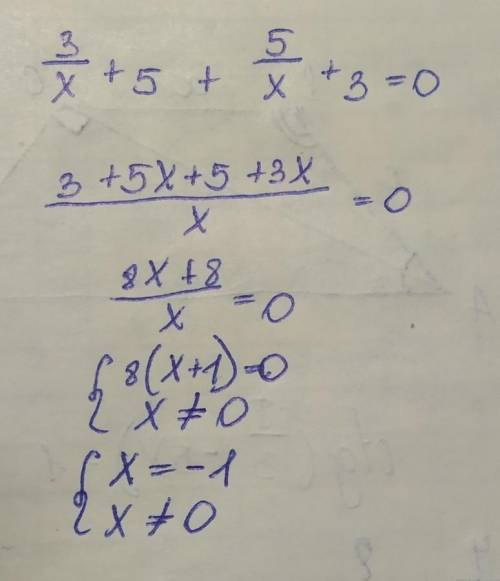 3/x + 5 + 5/x + 3 = 0
(3 + 5x + 5 + 3x)/x = 0
(8x + 8)/x = 0
{ 8(x+1) = 0
x ≠ 0
{ x = -1
x ≠ 0